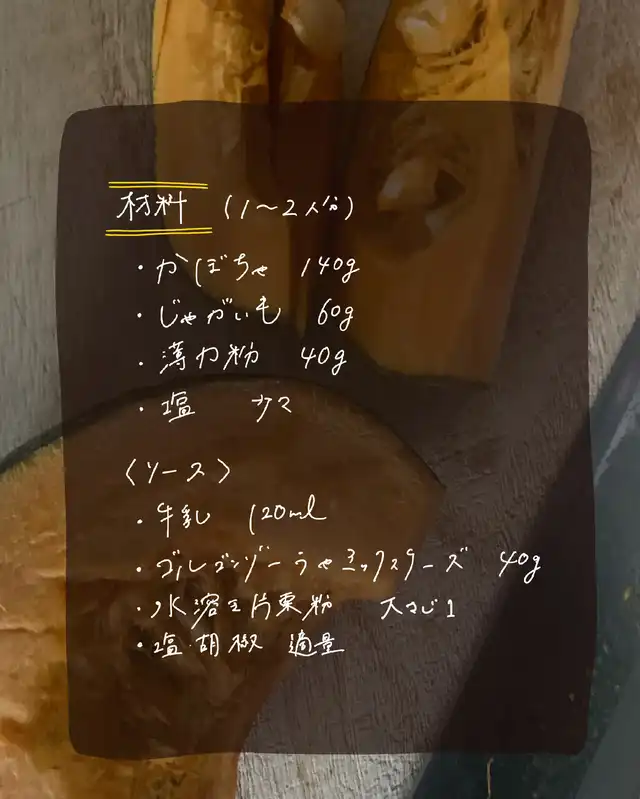 材料 (1〜2人分)
・かぼちゃ 140g
・じゃがいも 60g
・薄力粉 40g
・塩 少々
〈ソース〉
・牛乳 120ml
・ゴルゴンゾーラやミックスチーズ 40g
・水溶き片栗粉 大さじ1
・塩・胡椒 適量